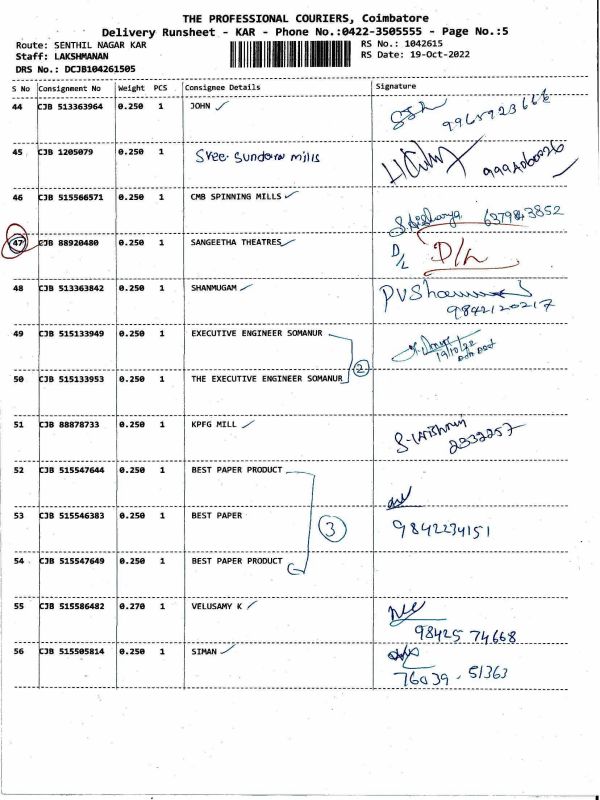 THE PROFESSIONAL COURIERS, Coimbatore
Delivery Runsheet - KAR - Phone No.:0422-3505555 - Page No.:5
Route: SENTHIL NAGAR KAR RS No.: 1042615
Staff: LAKSHMANAN RS Date: 19-Oct-2022
DRS No.: DCJB104261505
S No Consignment No Weight PCS Consignee Details Signature
44 CJB 513363964 0.250 1 JOHN
45 CJB 1205079 0.250 1 Sree Sundara mills
46 CJB 515566571 0.250 1 CMB SPINNING MILLS
47 CJB 88920480 0.250 1 SANGEETHA THEATRES D/L D/L
48 CJB 513363842 0.250 1 SHANMUGAM
9842120217
49 CJB 515133949 0.250 1 EXECUTIVE ENGINEER SOMANUR
19/10/22
2
50 CJB 515133953 0.250 1 THE EXECUTIVE ENGINEER SOMANUR
51 CJB 88878733 0.250 1 KPFG MILL
2332257
52 CJB 515547644 0.250 1 BEST PAPER PRODUCT
53 CJB 515546383 0.250 1 BEST PAPER 3 9842234151
54 CJB 515547649 0.250 1 BEST PAPER PRODUCT
55 CJB 515586482 0.270 1 VELUSAMY K
98425 74668
56 CJB 515505814 0.250 1 SIMAN
76039 - 51363